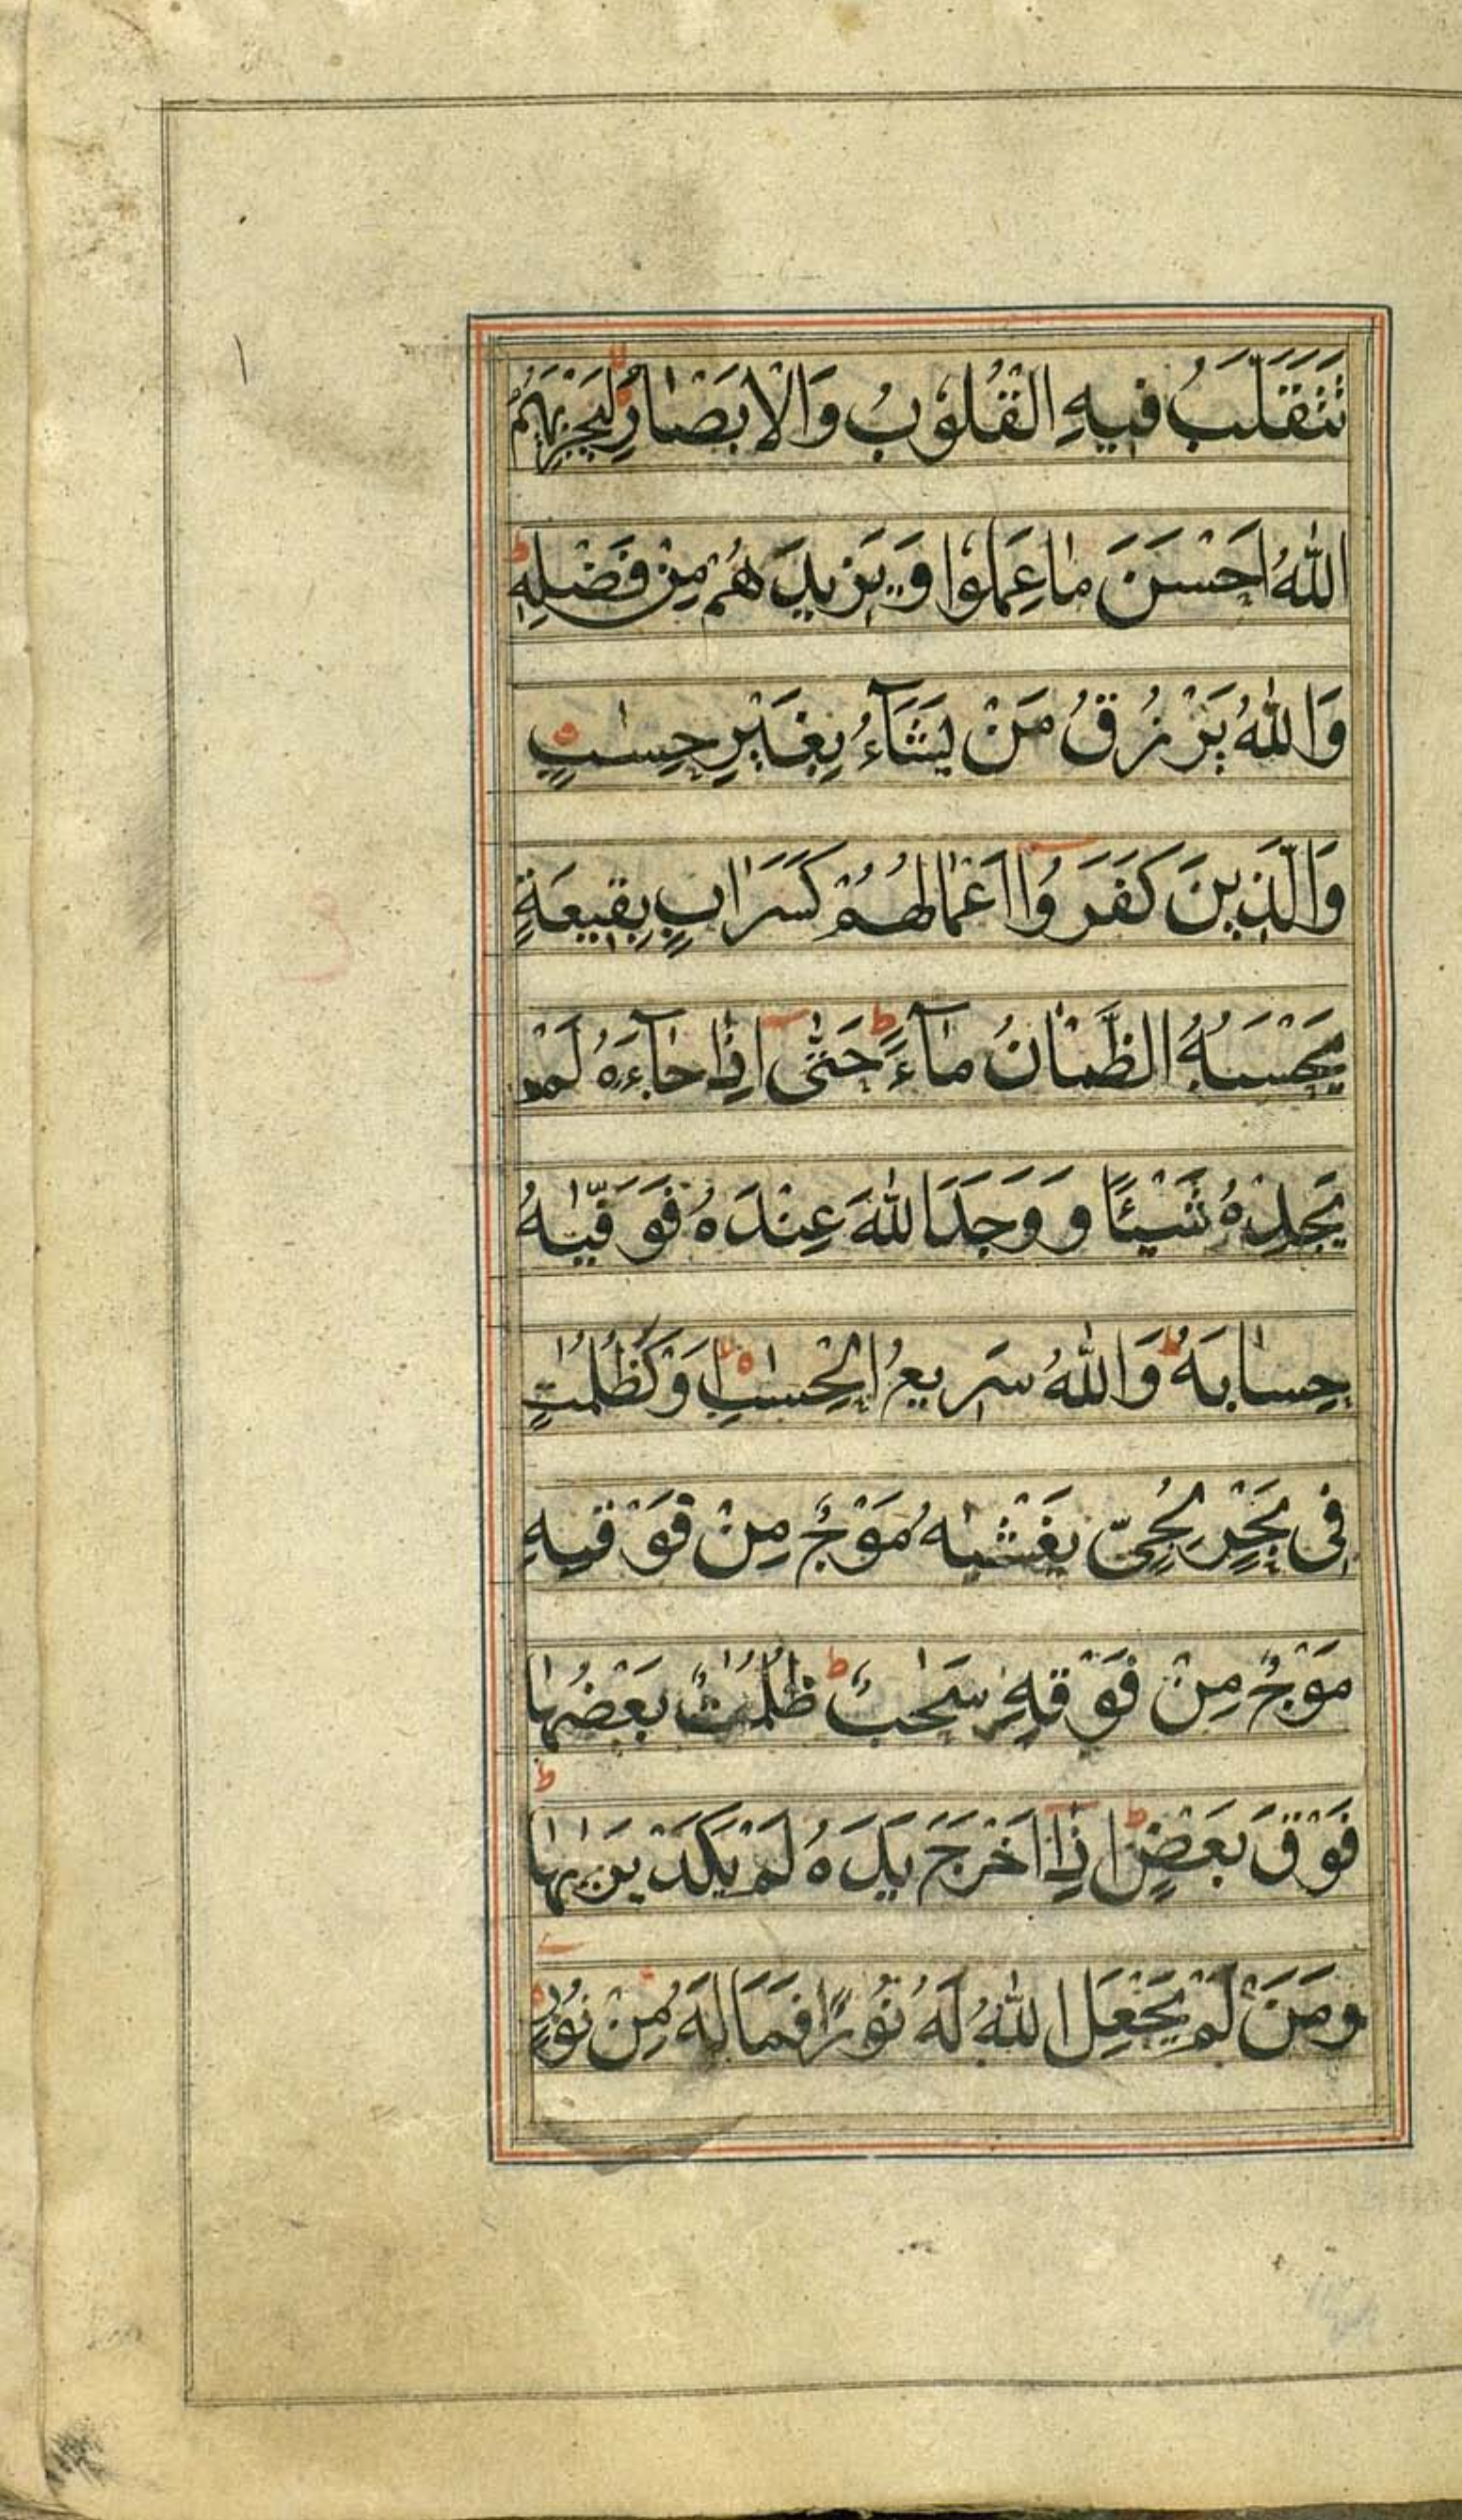 تَتَقَلَّبُ فِيهِ الْقُلُوْبُ وَالْاَبْصَارُ لِيَجْزِيَهُمُ
اللّٰهُ اَحْسَنَ مَا عَمِلُوْا وَيَزِيْدَهُمْ مِنْ فَضْلِهٖ ط
وَاللّٰهُ يَرْزُقُ مَنْ يَشَآءُ بِغَيْرِ حِسٰبٍ
وَالَّذِيْنَ كَفَرُوْا اَعْمَالُهُمْ كَسَرَابٍ بِقِيْعَةٍ
يَحْسَبُهُ الظَّمْاٰنُ مَآءً ط حَتّٰى اِذَا جَآءَهُ لَمْ
يَجِدْهُ شَيْئًا وَوَجَدَ اللّٰهَ عِنْدَهُ فَوَفّٰيهُ
حِسَابَهُ ط وَاللّٰهُ سَرِيْعُ الْحِسٰبِ لا اَوْ كَظُلُمٰتٍ
فِى بَحْرٍ لُجِّىٍّ يَغْشٰيهُ مَوْجٌ مِنْ فَوْقِهِ
مَوْجٌ مِنْ فَوْقِهٖ سَحٰبٌ ط ظُلُمٰتٌ بَعْضُهَا
فَوْقَ بَعْضٍ ط اِذَا اَخْرَجَ يَدَهُ لَمْ يَكَدْ يَرٰيهَا ط
وَمَنْ لَمْ يَجْعَلِ اللّٰهُ لَهُ نُوْرًا فَمَا لَهُ مِنْ نُوْرٍ